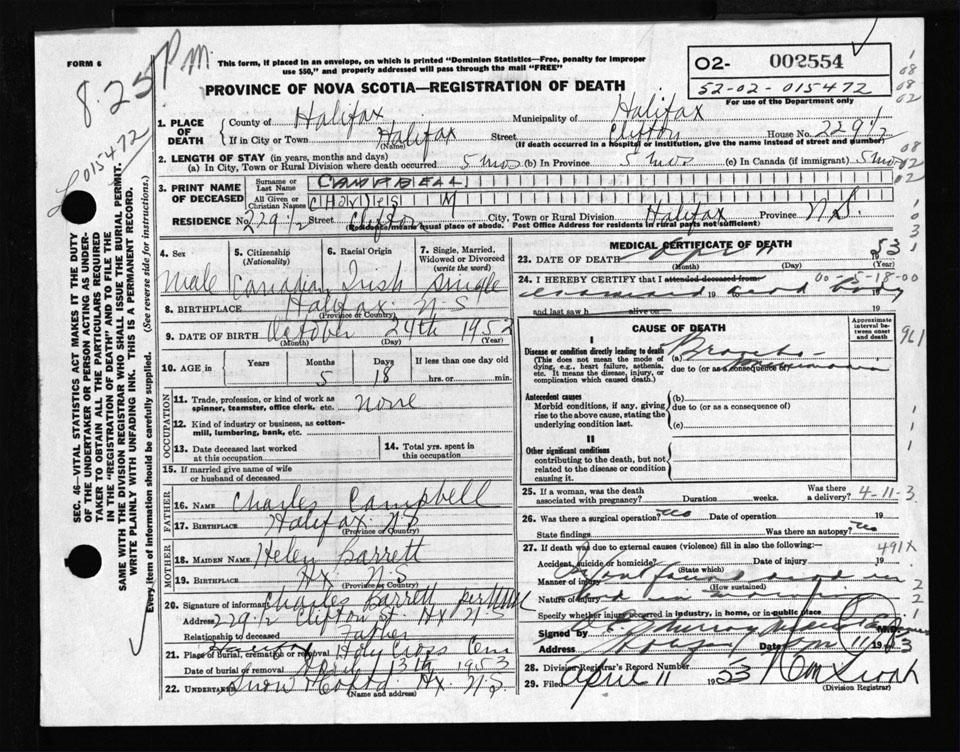 FORM 6
8.25 P.M.
This form, if placed in an envelope, on which is printed "Dominion Statistics—Free, penalty for improper
use $50," and properly addressed will pass through the mail "FREE"
PROVINCE OF NOVA SCOTIA—REGISTRATION OF DEATH
O2- 002554
52-02-015472
For use of the Department only
015472
1. PLACE OF DEATH
County of Halifax Municipality of Halifax
If in City or Town Halifax Street Clifton House No. 229½
(Name) (If death occurred in a hospital or institution, give the name instead of street and number)
2. LENGTH OF STAY (in years, months and days)
(a) In City, Town or Rural Division where death occurred 5 mos (b) In Province 5 mos (c) In Canada (if immigrant) 5 mos
3. PRINT NAME OF DECEASED
Surname or Last Name CAMPBELL
All Given or Christian Names CHARLES M
RESIDENCE No. 229½ Street Clifton City, Town or Rural Division Halifax Province N.S.
(Residence means usual place of abode. Post Office Address for residents in rural parts not sufficient)
4. Sex Male
5. Citizenship (Nationality) Canadian
6. Racial Origin Irish
7. Single, Married, Widowed or Divorced (write the word) Single
8. BIRTHPLACE Halifax N-S
(Province or Country)
9. DATE OF BIRTH October 24th 1952
(Month) (Day) (Year)
10. AGE in Years Months 5 Days 18 If less than one day old hrs. or min.
OCCUPATION
11. Trade, profession, or kind of work as
spinner, teamster, office clerk, etc. none
12. Kind of industry or business, as cotton-
mill, lumbering, bank, etc.
13. Date deceased last worked
at this occupation
14. Total yrs. spent in
this occupation
15. If married give name of wife
or husband of deceased
FATHER
16. NAME Charles Campbell
17. BIRTHPLACE Halifax N.S.
(Province or Country)
MOTHER
18. MAIDEN NAME Helen Barrett
19. BIRTHPLACE Hx N.S.
(Province or Country)
20. Signature of informant Charles Barrett per
Address 229½ Clifton St Hx N.S
Relationship to deceased Father
21. Place of burial, cremation or removal Holy Cross Cem
Date of burial or removal April 13th 1953
22. Undertaker Snow & Co Ltd. Hx. N.S.
(Name and address)
MEDICAL CERTIFICATE OF DEATH
23. DATE OF DEATH April 53
(Month) (Day) (Year)
24. I HEREBY CERTIFY that I attended deceased from 00-5-18-00
examined 19 dead body 19
and last saw h alive on 19
CAUSE OF DEATH
Approximate interval between onset and death
I
Disease or condition directly leading to death
(This does not mean the mode of
dying, e.g., heart failure, asthenia,
etc. It means the disease, injury, or
complication which caused death.)
(a) Broncho-pneumonia
due to (or as a consequence of)
Antecedent causes
Morbid conditions, if any, giving
rise to the above cause, stating the
underlying condition last.
(b)
due to (or as a consequence of)
(c)
II
Other significant conditions
contributing to the death, but not
related to the disease or condition
causing it.
25. If a woman, was the death
associated with pregnancy? Duration weeks. Was there a delivery? 4-11-3
26. Was there a surgical operation? No Date of operation 19
State findings Was there an autopsy? No
27. If death was due to external causes (violence) fill in also the following:— 491X
Accident, suicide or homicide? Date of injury 19
(State which)
Manner of injury found dead in
(How sustained)
Nature of injury bed in morning
Specify whether injury occurred in industry, in home, or in public place
Signed by Murray M.D.
Address Halifax Date Apr 11 1953
28. Division Registrar's Record Number
29. Filed April 11 1953
(Division Registrar)
SEC. 46—VITAL STATISTICS ACT MAKES IT THE DUTY
OF THE UNDERTAKER OR PERSON ACTING AS UNDER-
TAKER TO OBTAIN ALL THE PARTICULARS REQUIRED
IN THE "REGISTRATION OF DEATH" AND TO FILE THE
SAME WITH THE DIVISION REGISTRAR WHO SHALL ISSUE THE BURIAL PERMIT.
WRITE PLAINLY WITH UNFADING INK. THIS IS A PERMANENT RECORD.
Every item of information should be carefully supplied. (See reverse side for instructions.)